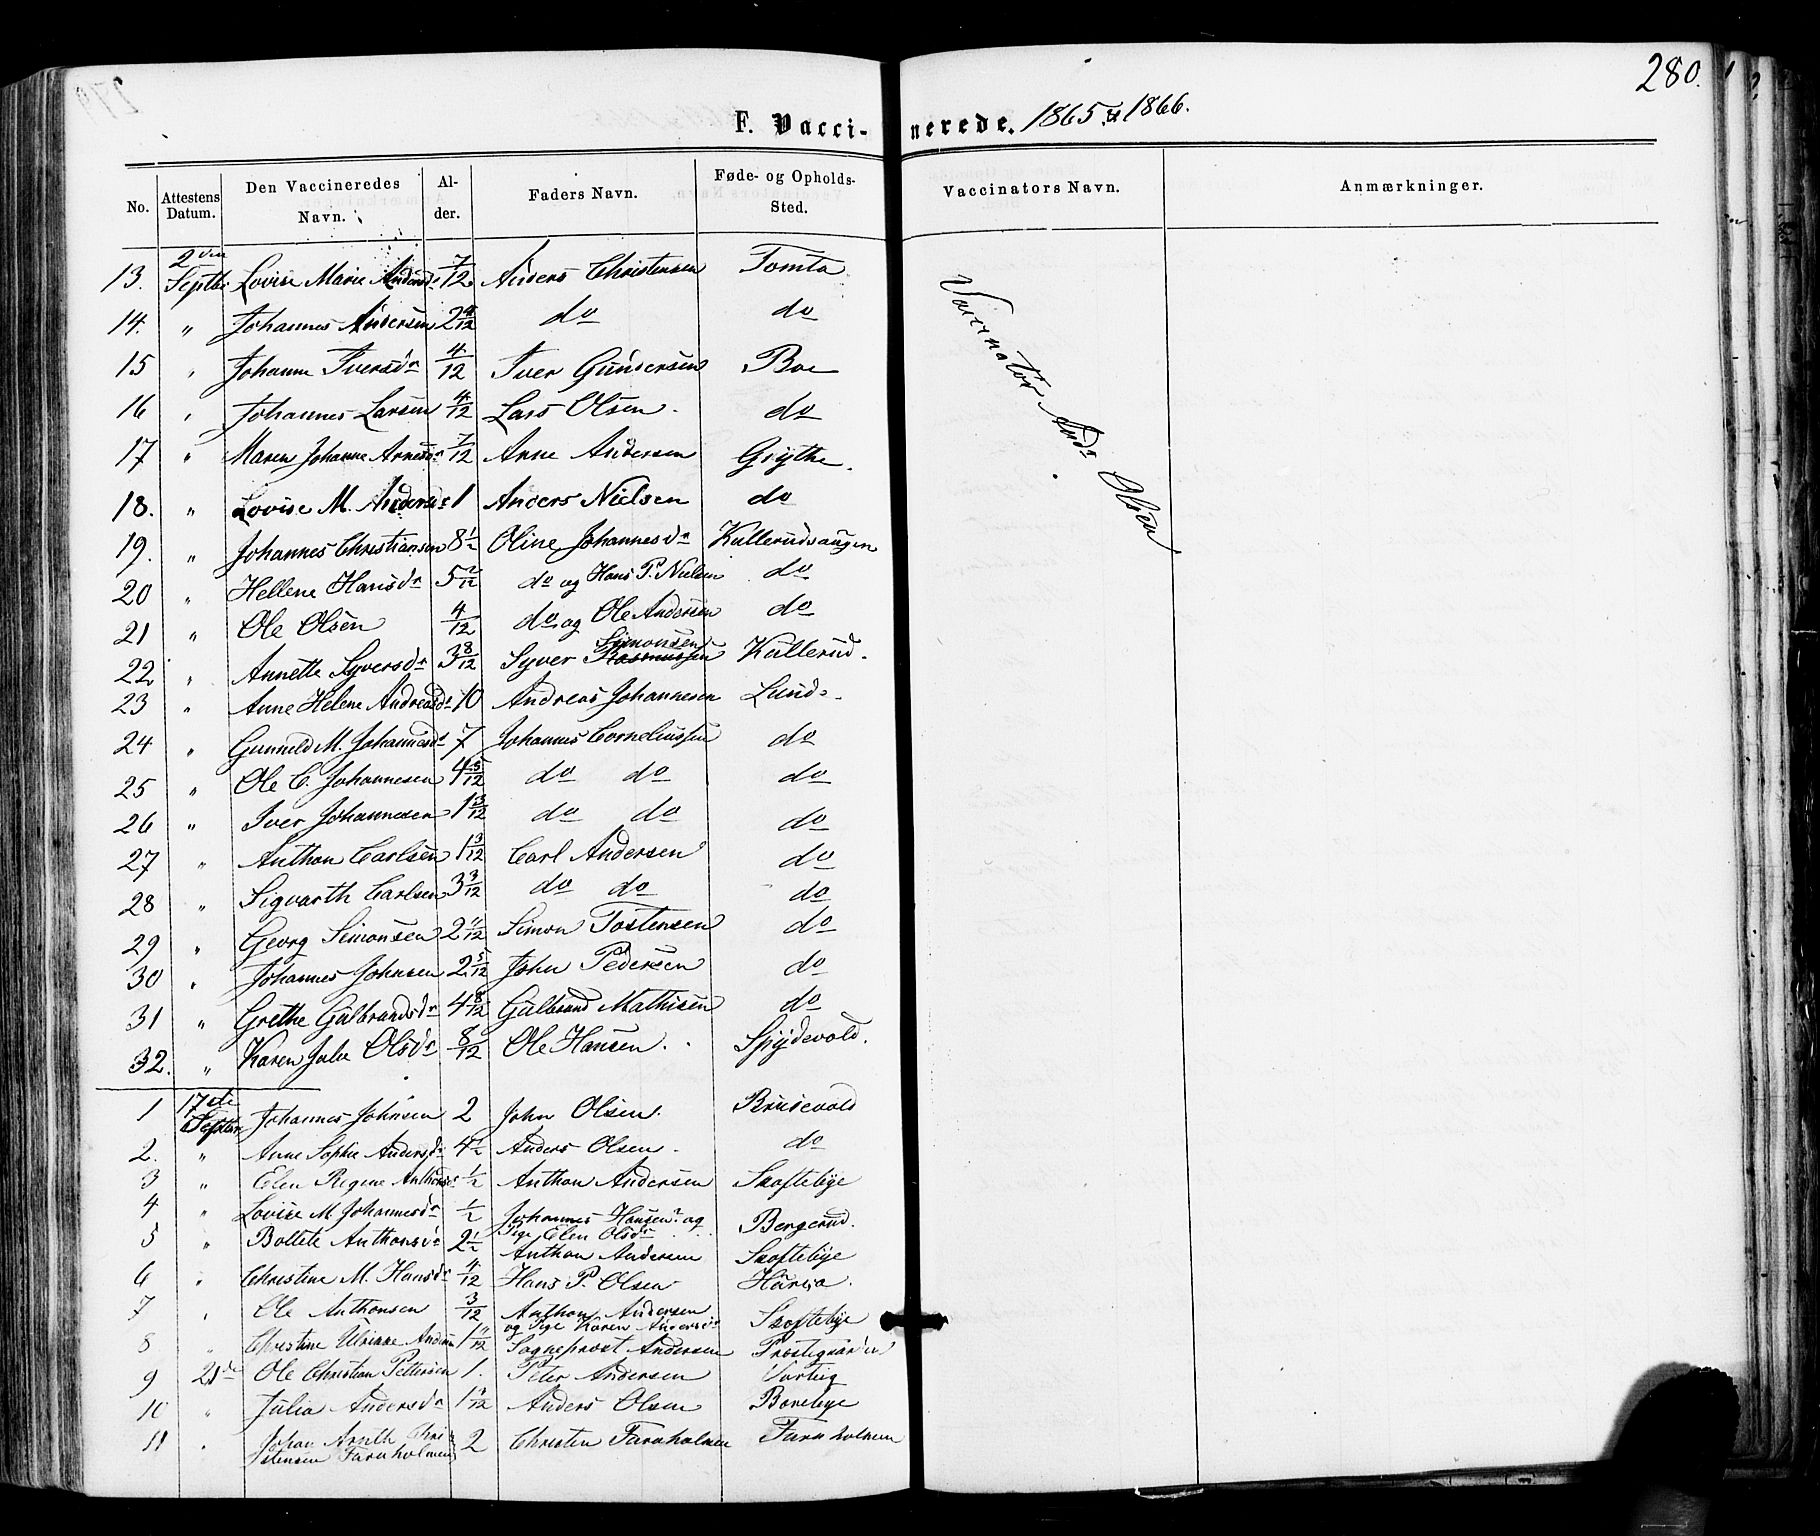 280.
F. Vacci- nerede. 1865 & 1866.
No. Attestens Datum. Den Vaccineredes Navn. Al- der. Faders Navn. Føde- og Opholds- Sted. Vaccinators Navn. Anmærkninger.
13. 2den Septbr Lovise Marie Andersdr 7/12 Anders Christensen Tomta
14. " Johannes Andersen 2 4/12 do do
15 " Johanne Iversdr 4/12 Iver Gundersen Boe
16 " Johannes Larsen 4/12 Lars Olsen. do
17 " Maren Johanne Arnesdr 7/12 Arne Andersen Grythe.
18. " Lovise M. Andersdr 1 Anders Nielsen do
19. " Johannes Christiansen 8 1/2 Oline Johannesdr Kullerudsaugen
20 " Hellene Hansdr 5 2/12 do og Hans P. Nielsen do
21 " Ole Olsen 4/12 do og Ole Andersen do
22 " Annette Syversdr 3 8/12 Syver Rasmussen Simonsen Kullerud.
23 " Anne Helene Andreasdr 10 Andreas Johannesen Lund.
24 " Gunneld M. Johannesdr 7 Johannes Corneliussen do
25 " Ole C. Johannesen 4 5/12 do do do
26 " Iver Johannesen 1 3/12 do do do
27 " Anthon Carlsen 1 3/12 Carl Andersen do
28 " Sigvarth Carlsen 3 3/12 do do do
29 " Georg Simonsen 2 11/12 Simon Tostensen do
30 " Johannes Johnsen 2 5/12 John Pedersen do
31 " Grethe Gulbrandsdr 4 8/12 Gulbrand Mathisen do
32. " Karen Julie Olsdr 8/12 Ole Hansen. Spydevold.
1 17de Septbr Johannes Johnsen 2 John Olsen. Brusevold
2. " Anne Sophie Andersdr 4 1/2 Anders Olsen. do
3 " Elen Regine Anthonsdr 1/2 Anthon Andersen Skoftebye
4 " Lovise M. Johannesdr 1/2 Johannes Hansen og Pige Elen Olsdr Bergerud.
5 " Bollete Anthonsdr 2 1/2 Anthon Andersen Skoftebye
6 " Christine M. Hansdr 4/12 Hans P. Olsen
7 " Ole Anthonsen 3/12 Anthon Andersen og Pige Karen Andersdr Skoftebye
8 " Christine Ulrikke Andersen 1 11/12 Sogneprost Andersen Prostegaarden
9 21de Ole Christian Pettersen 1. Peter Andersen
10 " Julia Andersdr Anders Olsen
11 " Johan Arnth Chri- stensen Farnholmen 2 Christen Farnholmen Farnholmen
Vaccinator Andr Olsen